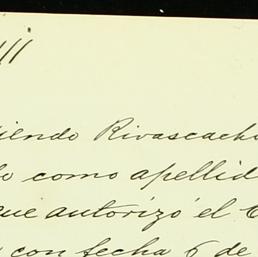 iendo Rivascacho
o como apellid
que autorizó el C
con fecha 6 de